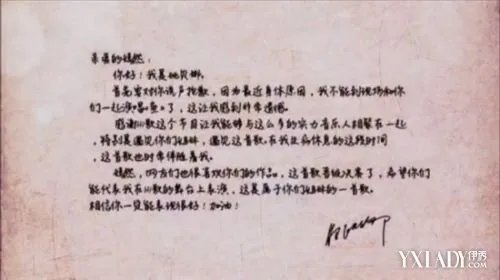 亲爱的嫣然:
你好!我是姚贝娜。
首先要对你说声抱歉,因为最近身体原因,我不能到现场和你
们一起演唱 了,这让我感到非常遗憾。
感谢 歌这个节目让我能够与这么多的实力音乐人相聚在一起
,特别是遇见你们姐妹,遇见这首歌。在我生病休息的这段时间
,这首歌也时常伴随着我。
嫣然,网友们也很喜欢你们的作品,这首歌晋级决赛了,希望你们
能代表我在 歌的舞台上表演,这是属于你们姐妹的一首歌。
相信你一定能表现很好!加油!
YXLADY.COM伊秀